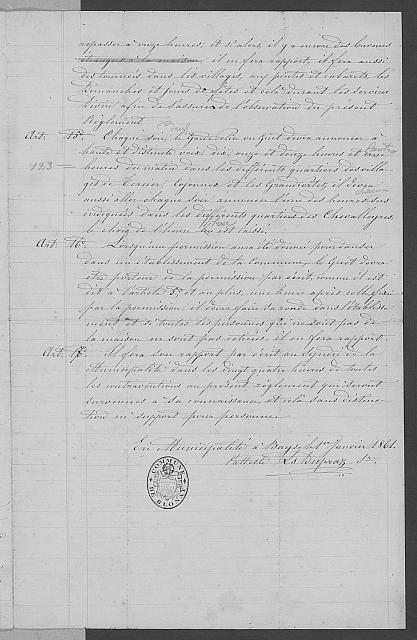 repasser à onze heures; et si alors, il y a encore des buveurs
étrangers à la maison, il en fera rapport; il fera aussi
des tournées dans les villages, aux pintes et cabarets les
Dimanches et jours de fêtes et cela durant les services
divins afin de s'assurer de l'observation du présent
Règlement.
Art. 15. Chaque soir, le Garde Police ou Guet devra annoncer à
haute et distincte voix, dix, onze et douze heures et
123 heures du matin dans les différents quartiers des villa-
ges de Tercier, Cojonnex et les Grandsortes, il devra
aussi aller chaque soir annoncer l'une des heures sus
indiquées dans les différents quartiers des Chevalleyres
le choix de l'heure en est laissé.
Art. 16. Lorsqu'une permission aura été donnée pour danser
dans un établissement de la Commune, le Guet devra
être porteur de la permission par écrit comme il est
dit à l'article 5, et au plus, une heure après celle fixée
par la permission, il devra faire sa ronde dans l'établisse-
ment et si toutes les personnes qui ne sont pas de
la maison ne sont pas retirées, il en fera rapport.
Art. 17. Il fera son rapport par écrit au Syndic de la
Municipalité dans les vingt quatre heures de toutes
les contraventions au présent règlement qui seront
survenues à sa connaissance et cela sans distinc-
tion ni support pour personne.
En Municipalité à Bayse le 1er Janvier 1861.
l'atteste Ls Dupraz Sre.
COMMUNE
DE BLONAY